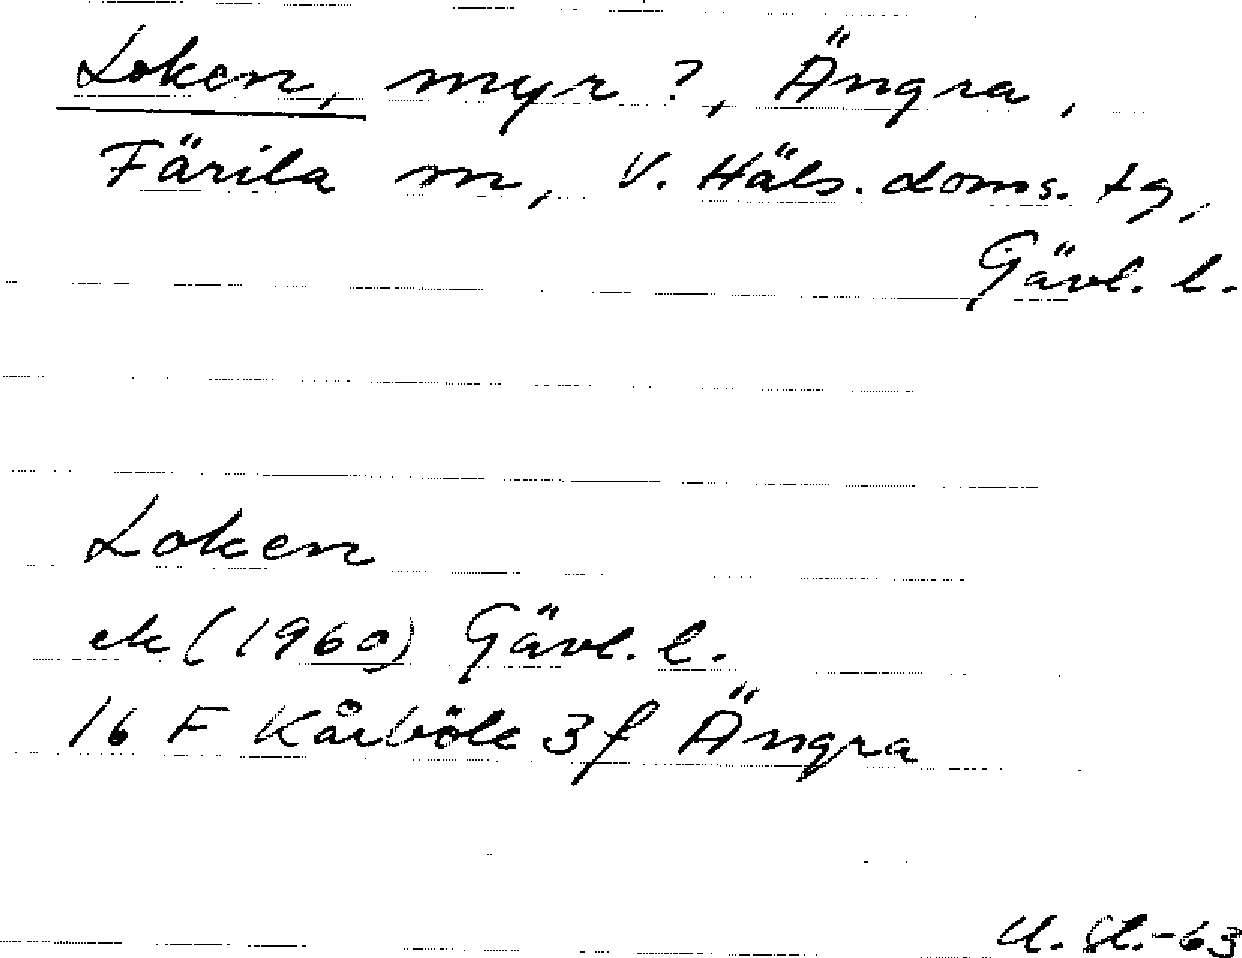 Loken, myr?, Ängra,
Färila sn, V. Häls. doms. tg,
Gävl. l.
Loken
ek (1960) Gävl. l.
16 F Kårböle 3f Ängra
U. St.-63